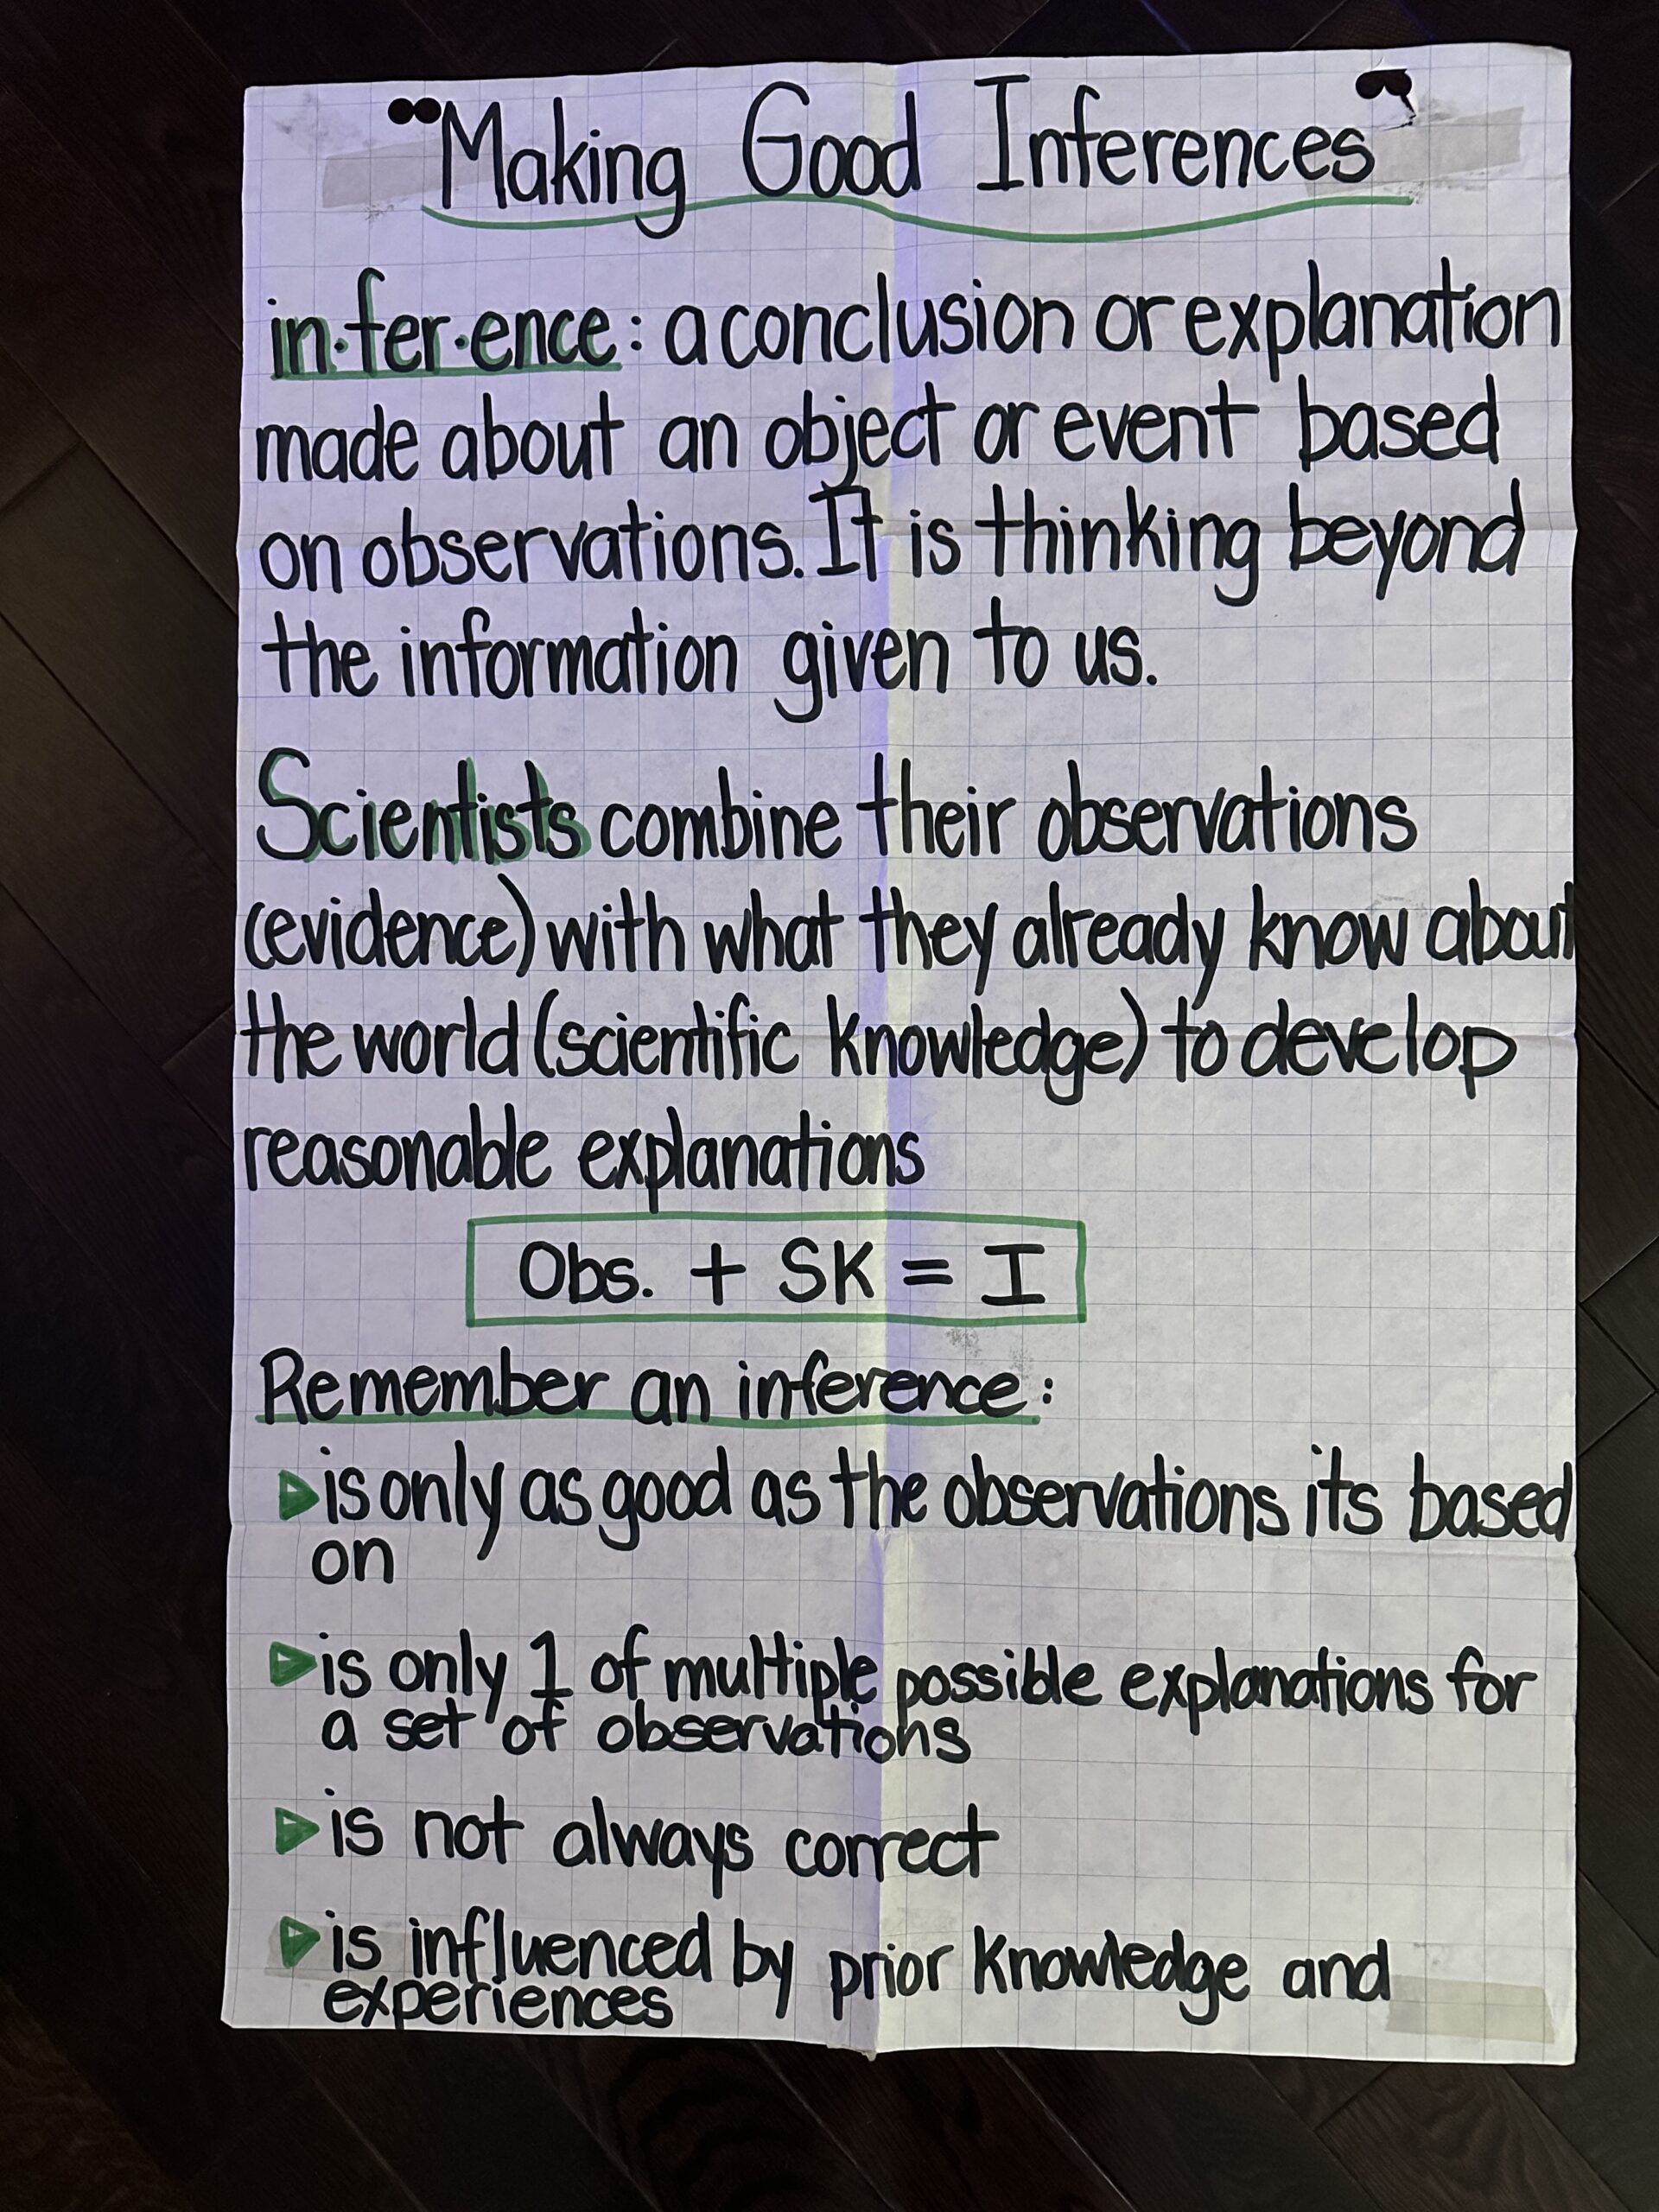 "Making Good Inferences"
in·fer·ence: a conclusion or explanation
made about an object or event based
on observations. It is thinking beyond
the information given to us.
Scientists combine their observations
(evidence) with what they already know about
the world (scientific knowledge) to develop
reasonable explanations
Obs. + SK = I
Remember an inference:
is only as good as the observations its based
on
is only 1 of multiple possible explanations for
a set of observations
is not always correct
is influenced by prior knowledge and
experiences